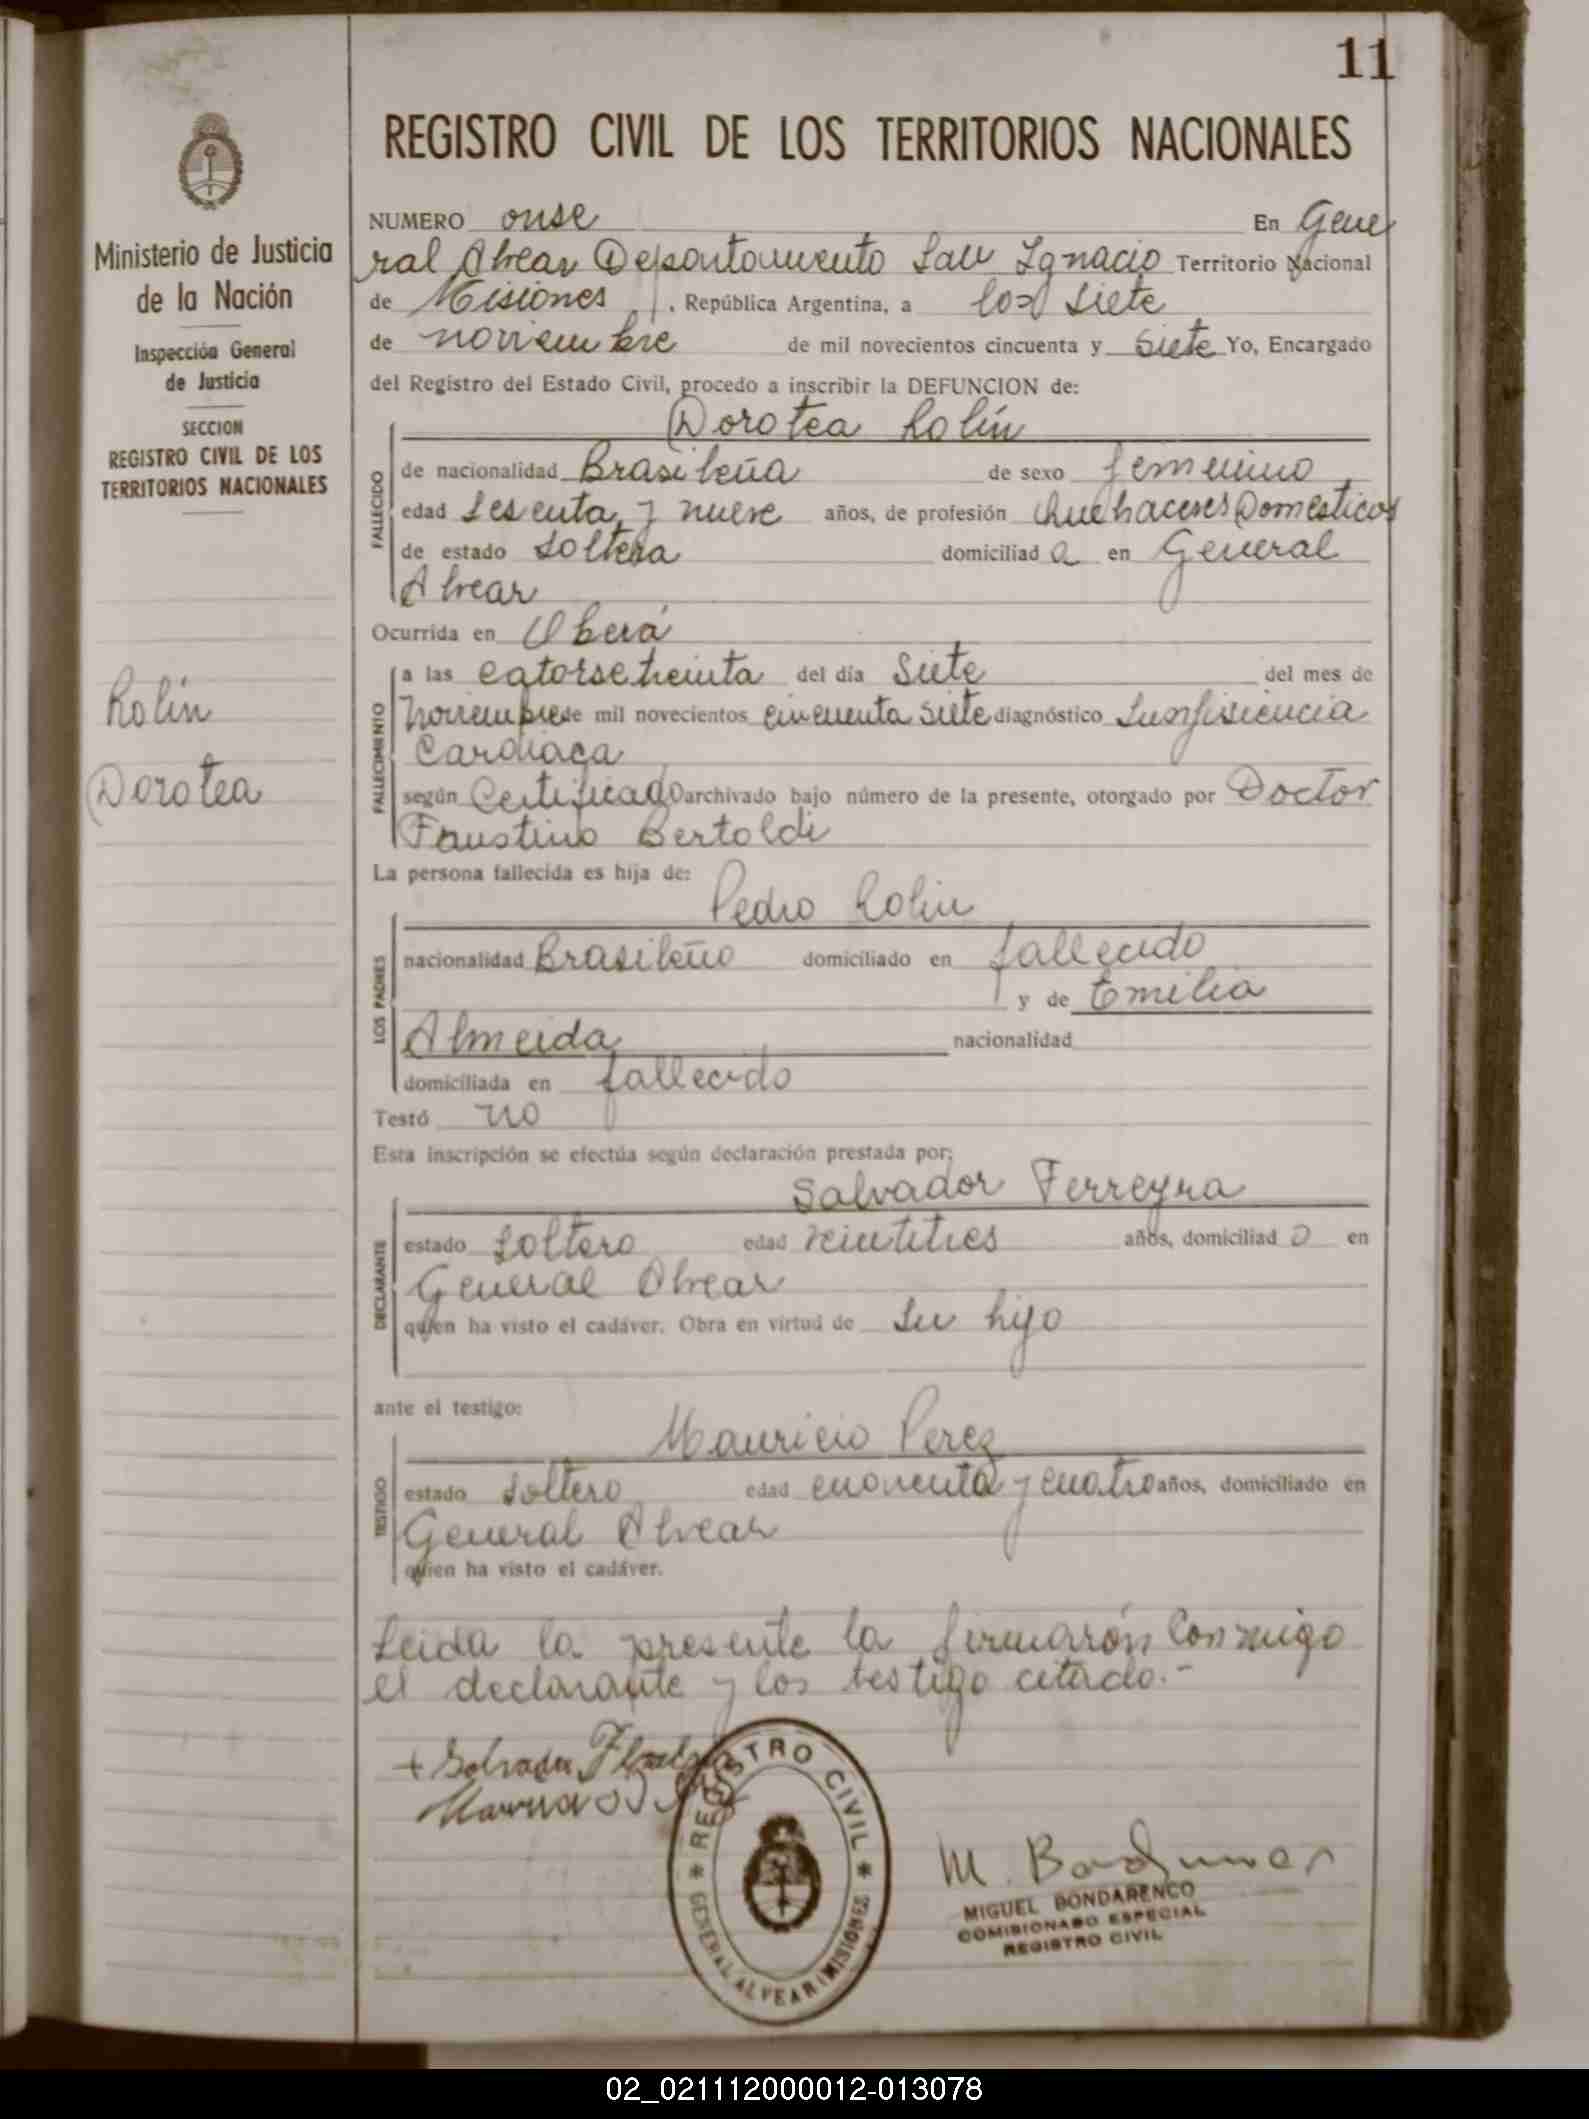 11
REGISTRO CIVIL DE LOS TERRITORIOS NACIONALES
Ministerio de Justicia
de la Nación
Inspección General
de Justicia
SECCION
REGISTRO CIVIL DE LOS
TERRITORIOS NACIONALES
Rolín
Dorotea
NUMERO onse En Gene
ral Alvear Departamento San Ignacio Territorio Nacional
de Misiones , República Argentina, a los siete
de noviembre de mil novecientos cincuenta y siete Yo, Encargado
del Registro del Estado Civil, procedo a inscribir la DEFUNCION de:
Dorotea Rolín
FALLECIDO
de nacionalidad Brasileña de sexo femenino
edad sesenta y nueve años, de profesión Quehaceres Domesticos
de estado soltera domiciliad a en General
Alvear
Ocurrida en Oberá
FALLECIMIENTO
a las catorse treinta del día siete del mes de
noviembre de mil novecientos cincuenta siete diagnóstico
Cardiaca
según Certificado archivado bajo número de la presente, otorgado por Doctor
Faustino Bertoldi
La persona fallecida es hija de:
Pedro Rolin
LOS PADRES
nacionalidad Brasileño domiciliado en fallecido
y de Emilia
Almeida nacionalidad
domiciliada en fallecido
Testó no
Esta inscripción se efectúa según declaración prestada por:
Salvador Ferreyra
DECLARANTE
estado soltero edad veintitres años, domiciliad o en
General Alvear
quien ha visto el cadáver. Obra en virtud de su hijo
ante el testigo:
Mauricio Perez
TESTIGO
estado soltero edad cuarenta y cuatro años, domiciliado en
General Alvear
quien ha visto el cadáver.
Leida la presente la firmarón conmigo
el declarante y los testigo citado.-
REGISTRO CIVIL
GENERAL ALVEAR (MISIONES)
MIGUEL BONDARENCO
COMISIONADO ESPECIAL
REGISTRO CIVIL
02_021112000012-013078